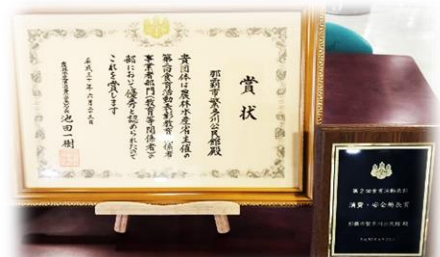 賞状
那覇市繁多川公民館殿
貴団体は農林水産省主催の
第2回食育活動表彰教育関係者・
事業者部門(教育等関係者)の
部において優秀と認められたので
これを賞します
平成三十年六月二十三日
池田一樹
第2回食育活動表彰
消費・安全局長賞
那覇市繁多川公民館 殿